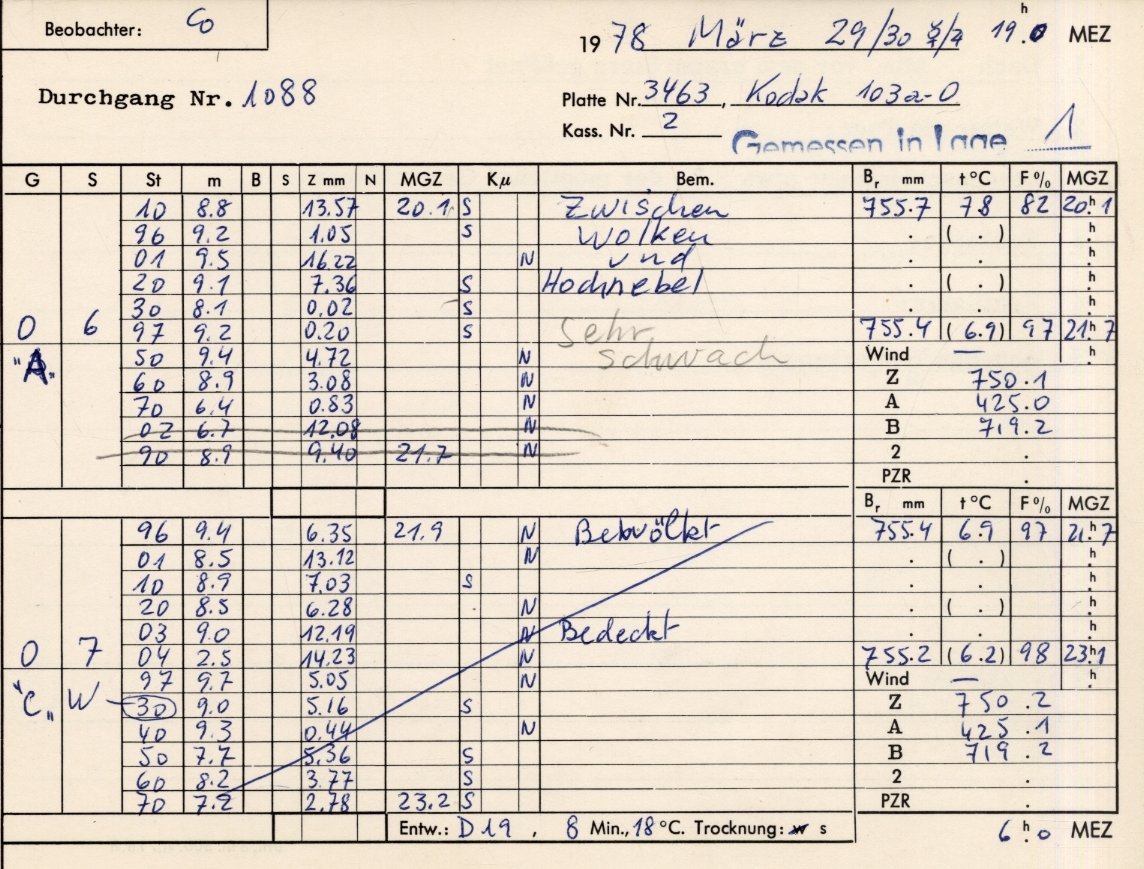 Beobachter: Co
1978 März 29/30 19h.0 MEZ
Durchgang Nr. 1088
Platte Nr. 3463, Kodak 103a-O
Kass. Nr. 2
Gemessen in Lage 1
G S St m B S Z mm N MGZ Kµ Bem. Br mm t °C F % MGZ
10 8.8 13.57 20.1 S Zwischen 755.7 7.8 82 20h.1
96 9.2 1.05 S Wolken . ( . ) h.
01 9.5 16.22 N und . . h.
20 9.1 7.36 S Hochnebel . ( . ) h.
30 8.1 0.02 S . . h.
0 6 97 9.2 0.20 S Sehr 755.4 (6.9) 97 21h.7
"A" 50 9.4 4.72 N schwach Wind — h.
60 8.9 3.08 N Z 750.1
70 6.4 0.83 N A 425.0
02 6.7 12.08 N B 719.2
90 8.9 9.40 21.7 N 2 .
PZR .
Br mm t °C F % MGZ
96 9.4 6.35 21.9 N Bewölkt 755.4 6.9 97 21h.7
01 8.5 13.12 N . ( . ) h.
10 8.9 7.03 S . . h.
20 8.5 6.28 N . ( . ) h.
03 9.0 12.19 N Bedeckt . . h.
0 7 04 2.5 14.23 N 755.2 (6.2) 98 23h.1
"C" W 97 9.7 5.05 N Wind — h.
30 9.0 5.16 S Z 750.2
40 9.3 0.44 N A 425.1
50 7.7 5.36 S B 719.2
60 8.2 3.77 S 2 .
70 7.2 2.78 23.2 S PZR .
Entw.: D19, 8 Min., 18 °C. Trocknung: w s
6h.0 MEZ